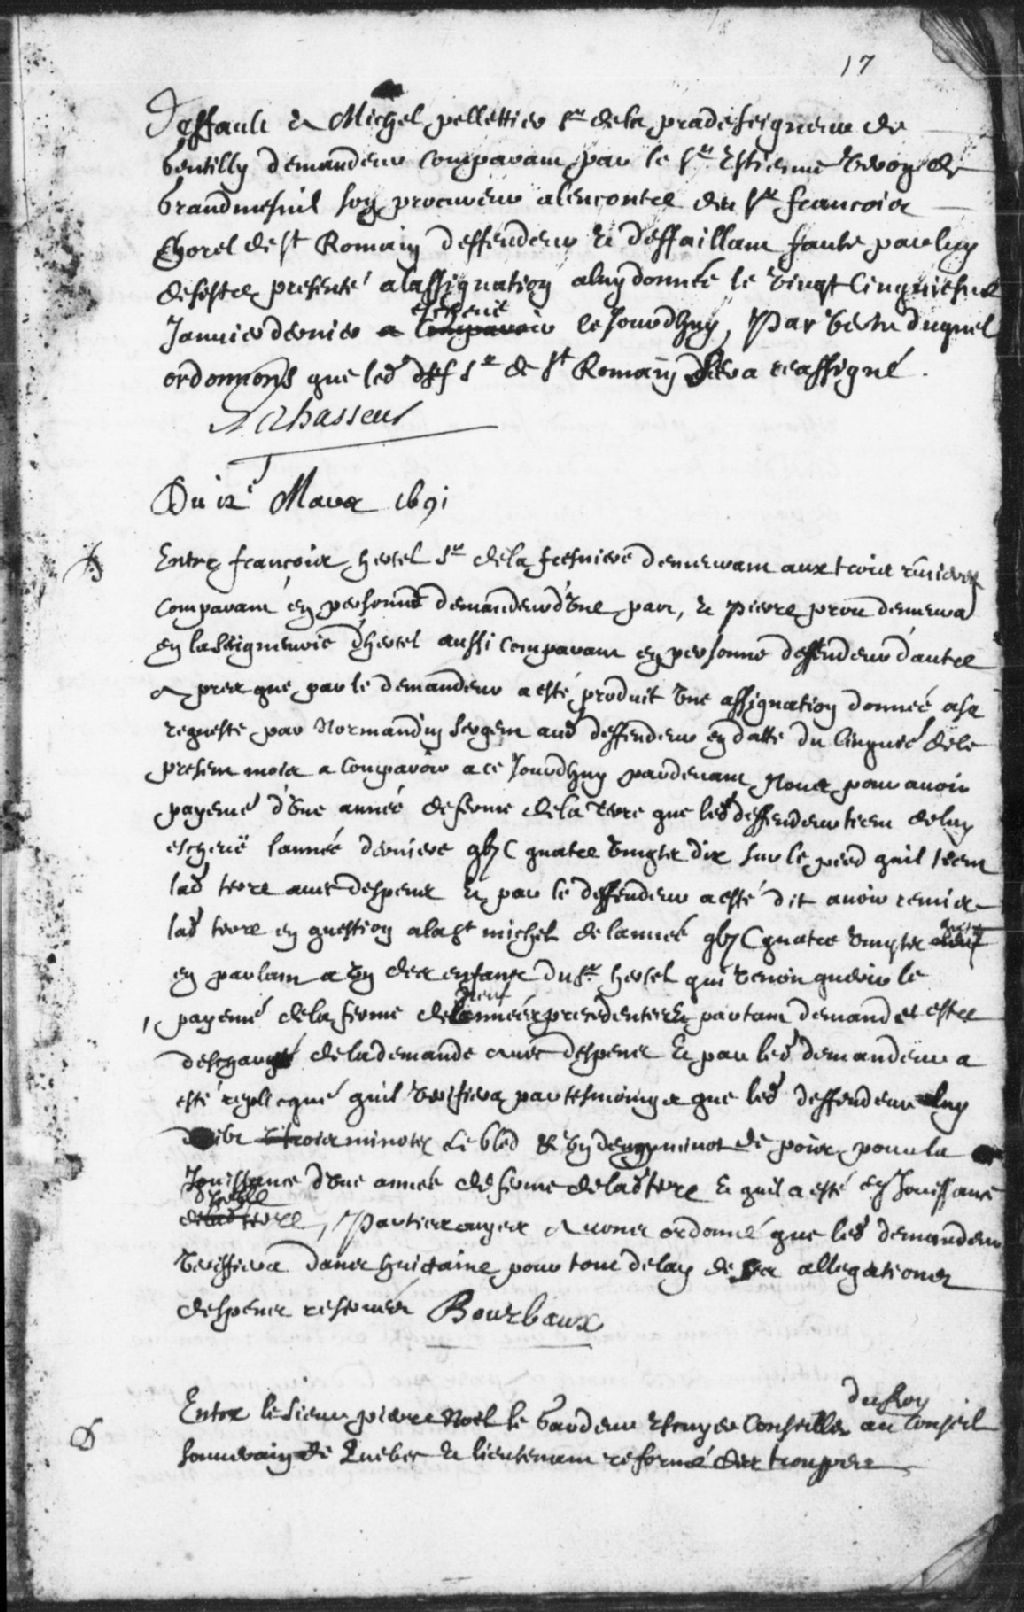 17
Deffault a Michel pellettier sr de la prade seigneur de
Gentilly demandeur comparant par le sr Estienne Veron de
Grandmesnil son procureur alencontre du sr francois
Chorel de st Romain deffendeur et deffaillant faute par luy
de sestre presenté a lassignation a luy donnée le vingt cinquiesme
escheue
Janvier dernier a comparoir ce Jourdhuy, Par vertu duquel
ordonnons que led def sr de st Romain sera reassigné.
Lechasseur
Du 12e Mars 1691
Entre francois hertel sr de la fresniere demeurant aux trois rivieres
comparant en personne demandeur d'une part, et pierre prou demeurant
en la seigneurie d'hertel aussi comparant en personne deffendeur d'autre
apres que par le demandeur a esté produit une assignation donnée a sa
requeste par Normandin sergent aud deffendeur en datte du cinquié de ce
present mois a comparoir a ce Jourdhuy pardevant Nous pour avoir
payement d'une année de ferme de la terre que led deffendeur tient de luy
escheue lannée derniere gbjC quatre vingts dix sur le pied quil tient
lad terre avec despens Et par le deffendeur a esté dit avoir remis
lad terre en question a la st michel de lannée gbjC quatre vingts
en parlant a un des enfans du sr hertel qui venoit querir le
neuf
payemt de la ferme de années precedentes Et partant demande estre
deschargé de la demande avec despens Et par led demandeur a
esté repliqué quil verifiera par tesmoings que led deffendeur luy
doibt trois minots de bled et un demy minot de pois pour la
Jouissance d'une année de ferme de lad terre et quil a esté en Jouissance
d'icelle
de lad terre, Parties ouyes avons ordonné que led demandeur
verifiera dans huictaine pour tout delay de sa allegations
despens reservés Bourbaux
du Roy
Entre le sieur pierre Noel le Gardeur Escuyer Conseiller au Conseil
souverain de Quebec et lieutenant reformé des trouppes